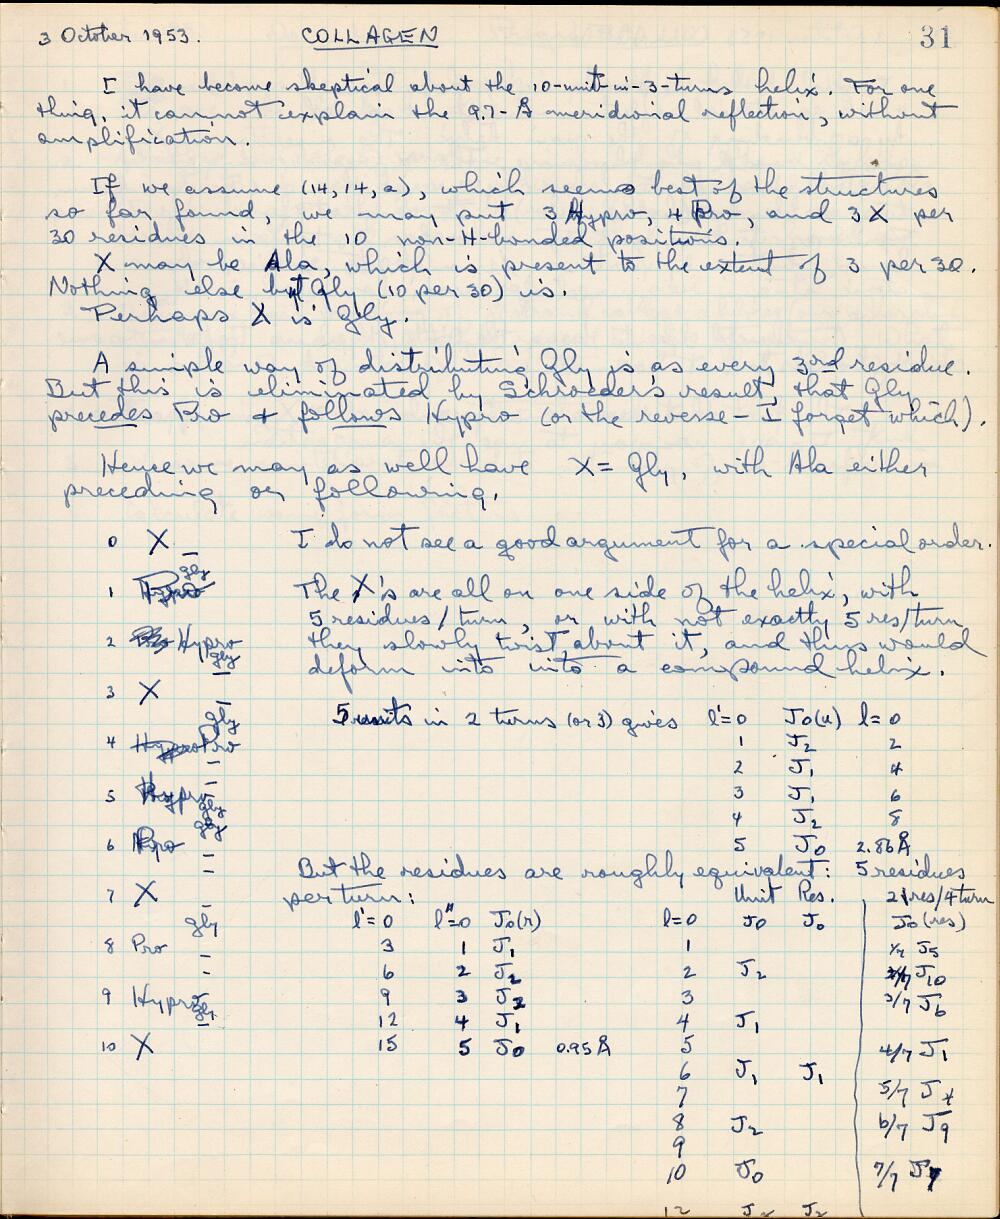 3 October 1953. COLLAGEN 31
I have become skeptical about the 10-unit-in-3-turns helix. For one
thing, it cannot explain the 9.7-Å meridional reflection, without
amplification.
If we assume (14, 14, a), which seems best of the structures
so far found, we may put 3 Hypro, 4 Pro, and 3 X per
30 residues in the 10 non-H-bonded positions.
X may be Ala, which is present to the extent of 3 per 30.
Nothing else but Gly (10 per 30) is.
Perhaps X is Gly.
A simple way of distributing Gly is as every 3rd residue.
But this is eliminated by Schroeder's result, that Gly
precedes Pro & follows Hypro (or the reverse – I forget which).
Hence we may as well have X = Gly, with Ala either
preceding or following.
0 X – I do not see a good argument for a special order.
gly
1 The X's are all on one side of the helix, with
5 residues/turn, or with not exactly 5 res/turn
2 Hypro they slowly twist about it, and thus would
gly
deform into into a compound helix.
3 X –
gly 5 units in 2 turns (or 3) gives l'=0 J0(u) l=0
4 Pro 1 J2 2
– 2 J1 4
5 Hypro 3 J1 6
gly 4 J2 8
gly
6 Pro 5 J0 2.86Å
– But the residues are roughly equivalent: 5 residues
7 X – per turn: Unit Res. 21 res/4 turn
gly l'=0 l"=0 J0(r) l=0 J0 J0 J0(res)
8 Pro 3 1 J1 1 1/7 J5
– 6 2 J2 2 J2 J10
9 Hypro 9 3 J2 3 3/7 J6
gly 12 4 J1 4 J1
10 X 15 5 J0 0.95Å 5 4/7 J1
6 J1 J1
7 5/7 J4
8 J2 6/7 J9
9
10 J0 7/7
12 J2